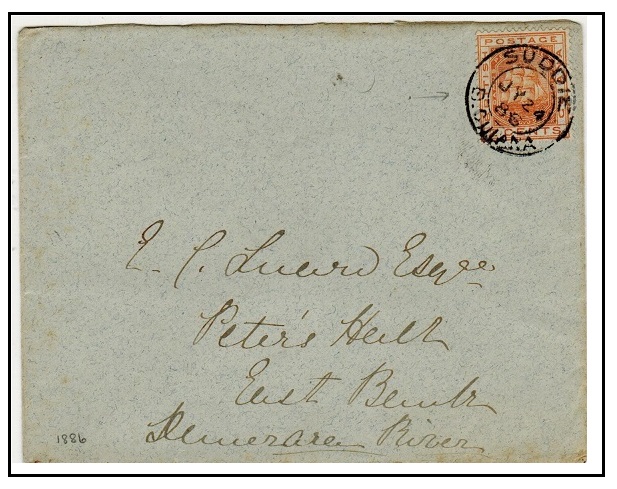 POSTAGE
CENTS
SUDDIE
JY 24
86
B. GUIANA
E. C. Luard Esqre
Peter's Hall
East Bank
Demerara River
1886